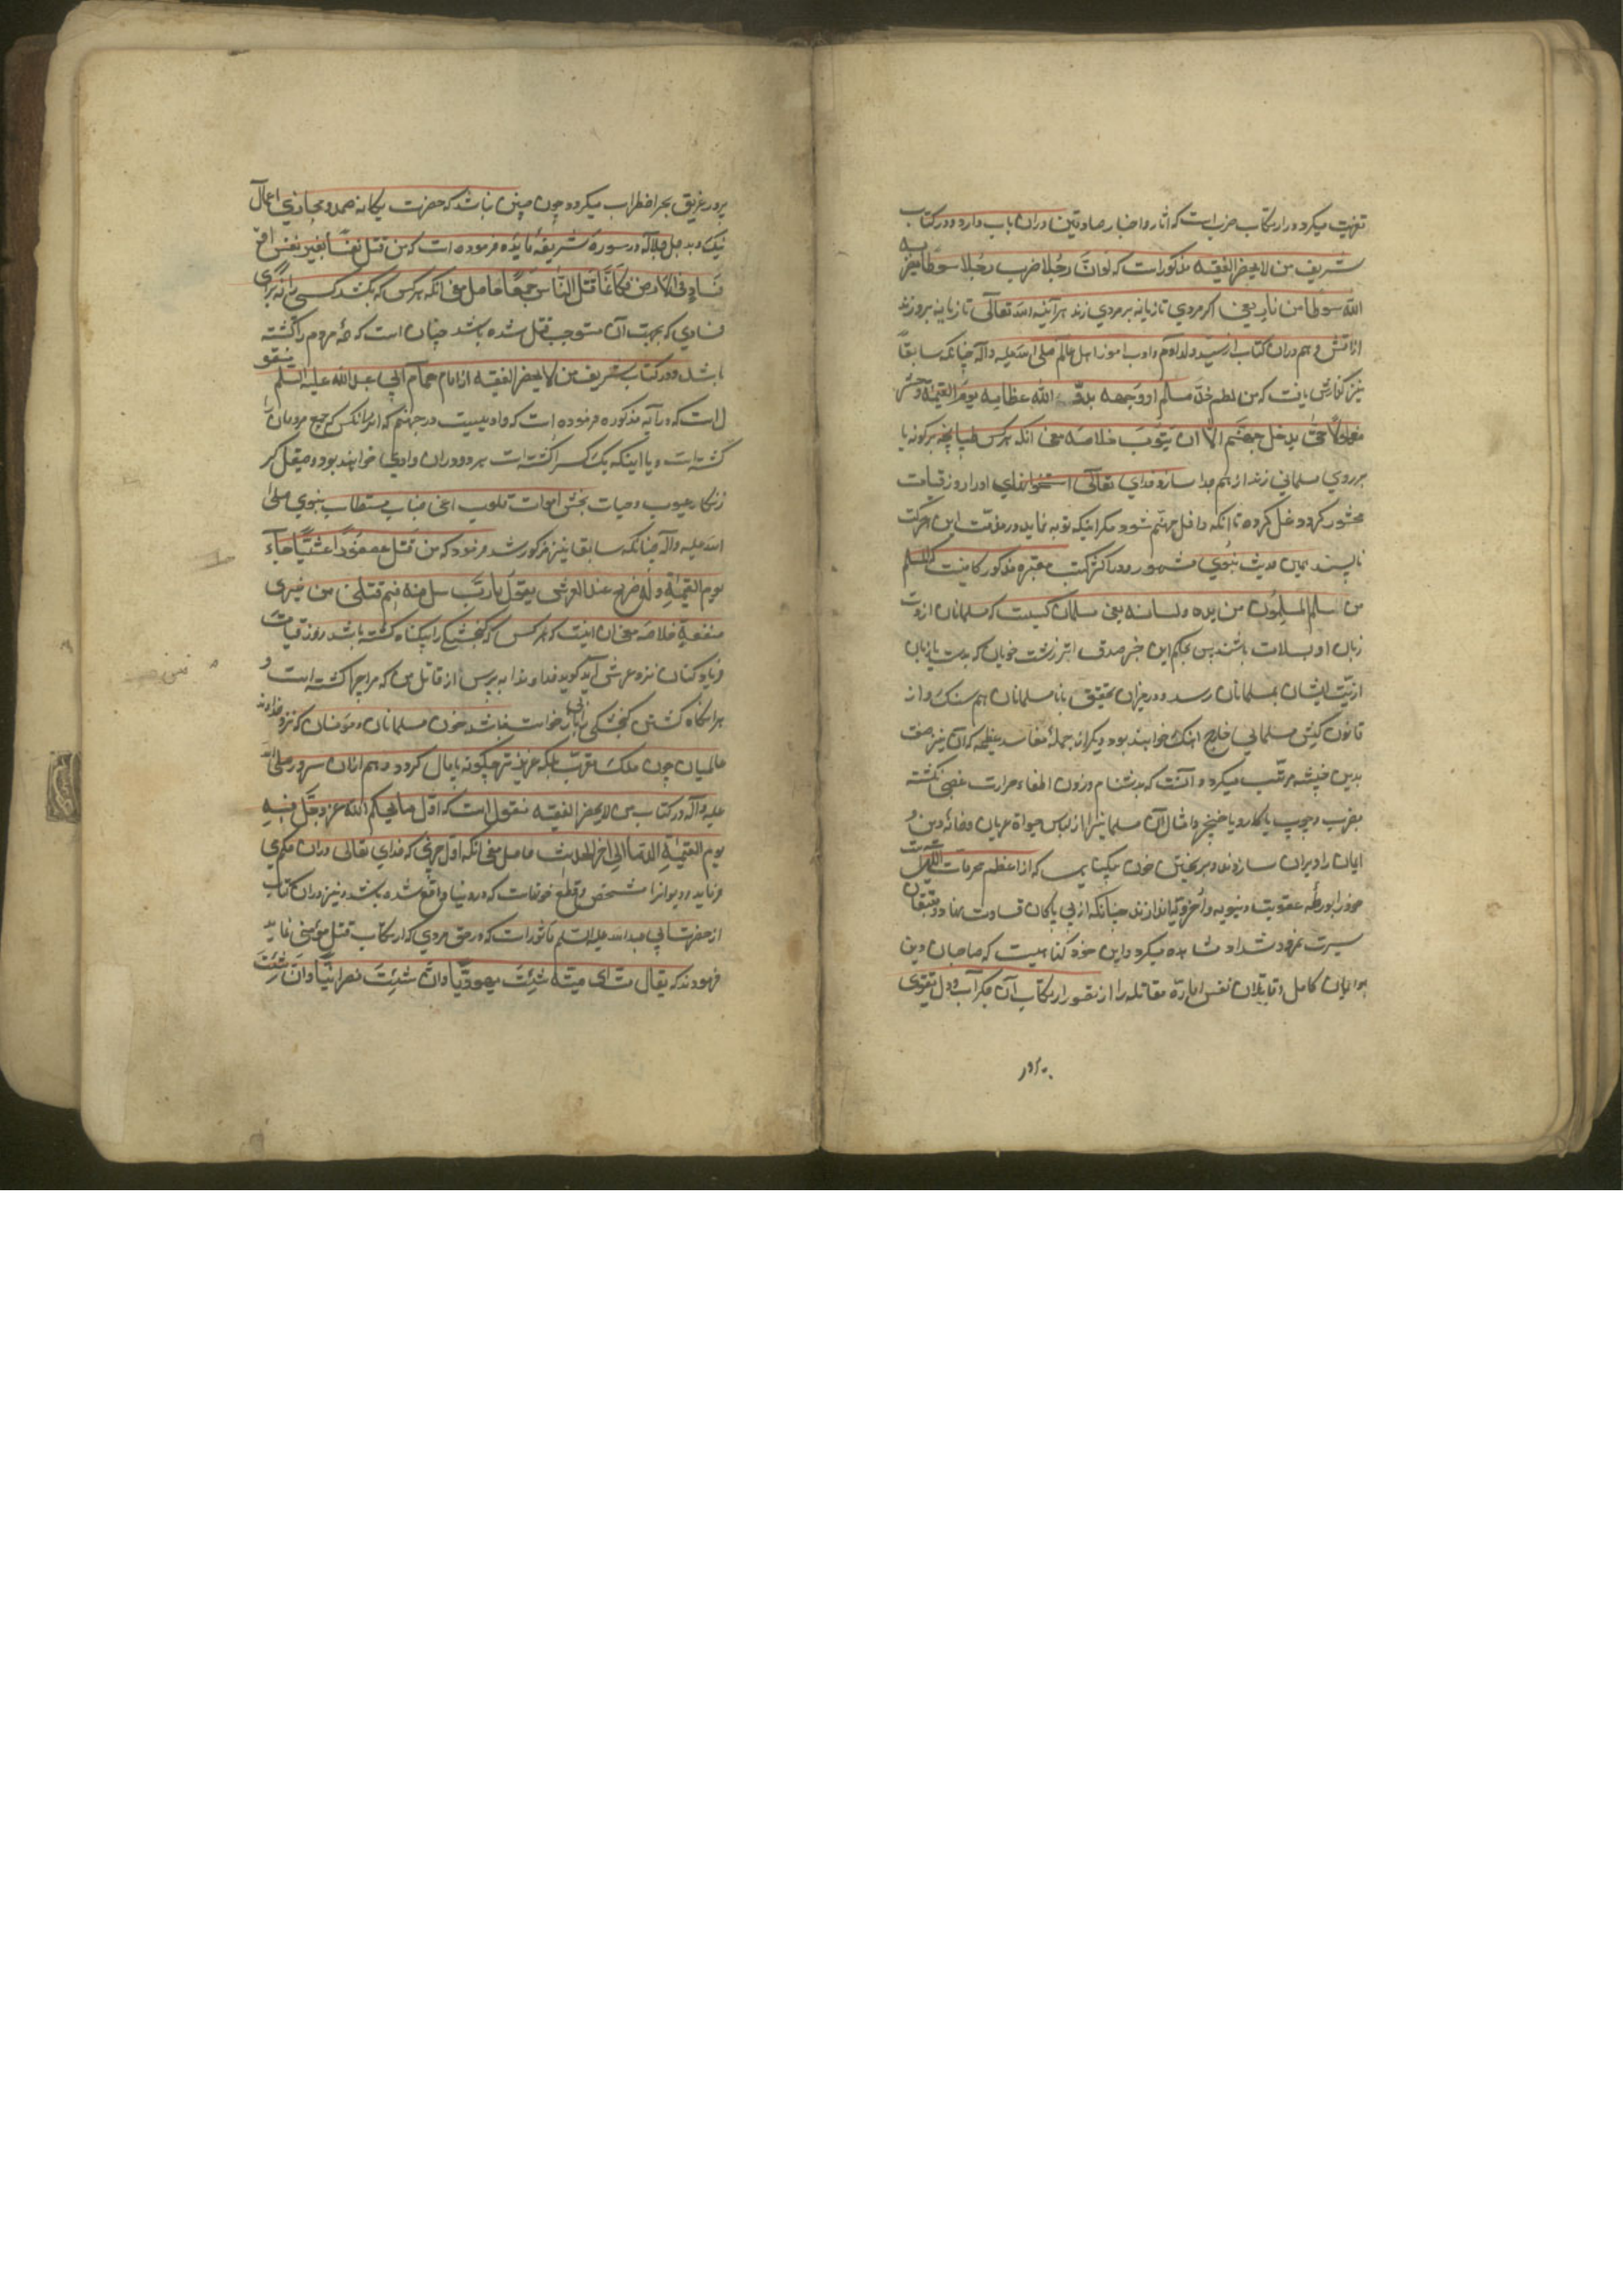 تقویت میکردد و ارتکاب ضرب است که آثار و اخبار صادقین دران باب وارد و در کتاب
شریف من لایحضر الفقیه مذکور است که لو ان رجلا ضرب رجلا سوطا لضربه
الله سوطا من نار یعنی اگر مردی تازیانه بر مردی زند هر آینه الله تعالی تازیانه برو زند
از آتش و هم دران کتاب از سید ولد آدم و ادب آموز اهل عالم صلی الله علیه و آله چنانکه سابقا
نیز گذارش یافت که من لطم خد مسلم او وجهه بدد الله عظامه یوم القیمة و حشر
مغلولا حتی یدخل جهنم الا ان یتوب خلاصه معنی انکه هر کس طپانچه بر گونه یا
بر روی مسلمانی زند از هم جدا سازد خدای تعالی استخوانهای او را روز قیامت
محشور کردد غل کرده تا انکه داخل جهنم شود مگر اینکه توبه نماید و در مذمت این حرکت
ناپسند همان حدیث نبوی مشهور و در اکثر کتب معتبره مذکور کافیست که المسلم
من سلم المسلمون من یده و لسانه یعنی مسلمان کسیست که مسلمانان از دست
زبان او بسلامت باشند پس بحکم این خبر صدق اثر زشت خویان که بدست یا زبان
اذیت ایشان بمسلمانان رسد در میزان تحقیق با نامسلمانان هم سنک و از
قانون کیش مسلمانی خارج آهنک خواهند بود دیگر از جمله مفاسد عظیمه که آن نیز بر صفت
بدین خبیثه مرتب میکردد آنست که بدشنام و زدن اطفاء حرارت غضبی نکشته
بضرب و چوب یا کارد یا خنجر و امثال آن مسلمانیرا از لباس حیوة عریان و خانه دین و
ایمان را ویران سازند و بریختن خون بیکناهی که از اعظم محرمات الهی است
خود را بورطه عقوبت دنیویه و اخرویه اندازند چنانکه از بی باکان قساوت بنیاد و شقیان
سیرت نمرود شداد مشاهده میکردد و این خود کناهیست که صاحبان دین
و ایمان کامل و قاتلان نفس اماره مقاتله را از تصور ارتکاب آن جگر آب و دل تقوی
پرور
پرور غریق بحر اضطراب میکردد چون چنین نباشد که حضرت یگانه صمد و مجازی اعمال
نیک و بد جل جلاله در سوره شریفه مایده فرموده است که من قتل نفسا بغیر نفس او
فساد فی الارض فکانما قتل الناس جمیعا حاصل معنی انکه هر کس که بکشد کسی را نه برای
فسادی که بجهت آن مستوجب قتل شده باشد چنان است که همه مردم را کشته
باشد و در کتاب شریف من لایحضر الفقیه از امام همام ابی عبد الله علیه السلم منقو
ل است که در آیه مذکوره فرموده است که وادییست در جهنم که اگر انکس که جمیع مردمان را
کشته است و یا اینکه یک کس را کشته است هر دو دران وادی خواهند بود و صیقل کر
زنکار عیوب و حیات بخش اموات قلوب اعنی جناب مستطاب نبوی صلی
الله علیه و آله چنانکه سابقا نیز مذکور شد فرمود که من قتل عصفورا عبثا جاء
یوم القیمة و له صراخ عند العرش یقول یا رب سل هذا فیم قتلنی من غیر
منفعة خلاصه معنی ان اینست که هر کس که کنجشکی را بیکناه کشته باشد روز قیامت
فریاد کنان نزد عرش آید کوید خداوندا بپرس از قاتل من که مرا چرا کشته است و
هرگاه کشتن کنجشکی را این بازخواست باشد خون مسلمانان و مؤمنان که نزد خداوند
عالمیان چون ملک مقرب بلکه عزیزتر چگونه پایمال کردد و هم ازان سرور صلی الله
علیه و آله در کتاب من لایحضر الفقیه منقول است که اول ما یحکم الله عز و جل فیه
یوم القیمة الدماء الی اخر الحدیث حاصل معنی انکه اول چیزی که خدای تعالی دران حکم
فرماید در دیوان مشخص و قطع خونهاست که در دنیا واقع شده باشد و نیز دران کتاب
از حضرت ابی عبد الله علیه السلم ماثور است که در حق مردی که ارتکاب قتل مؤمنی نماید
فرمودند که یقال مت ای میتة شئت یهودیا و ان شئت نصرانیا و ان شئت